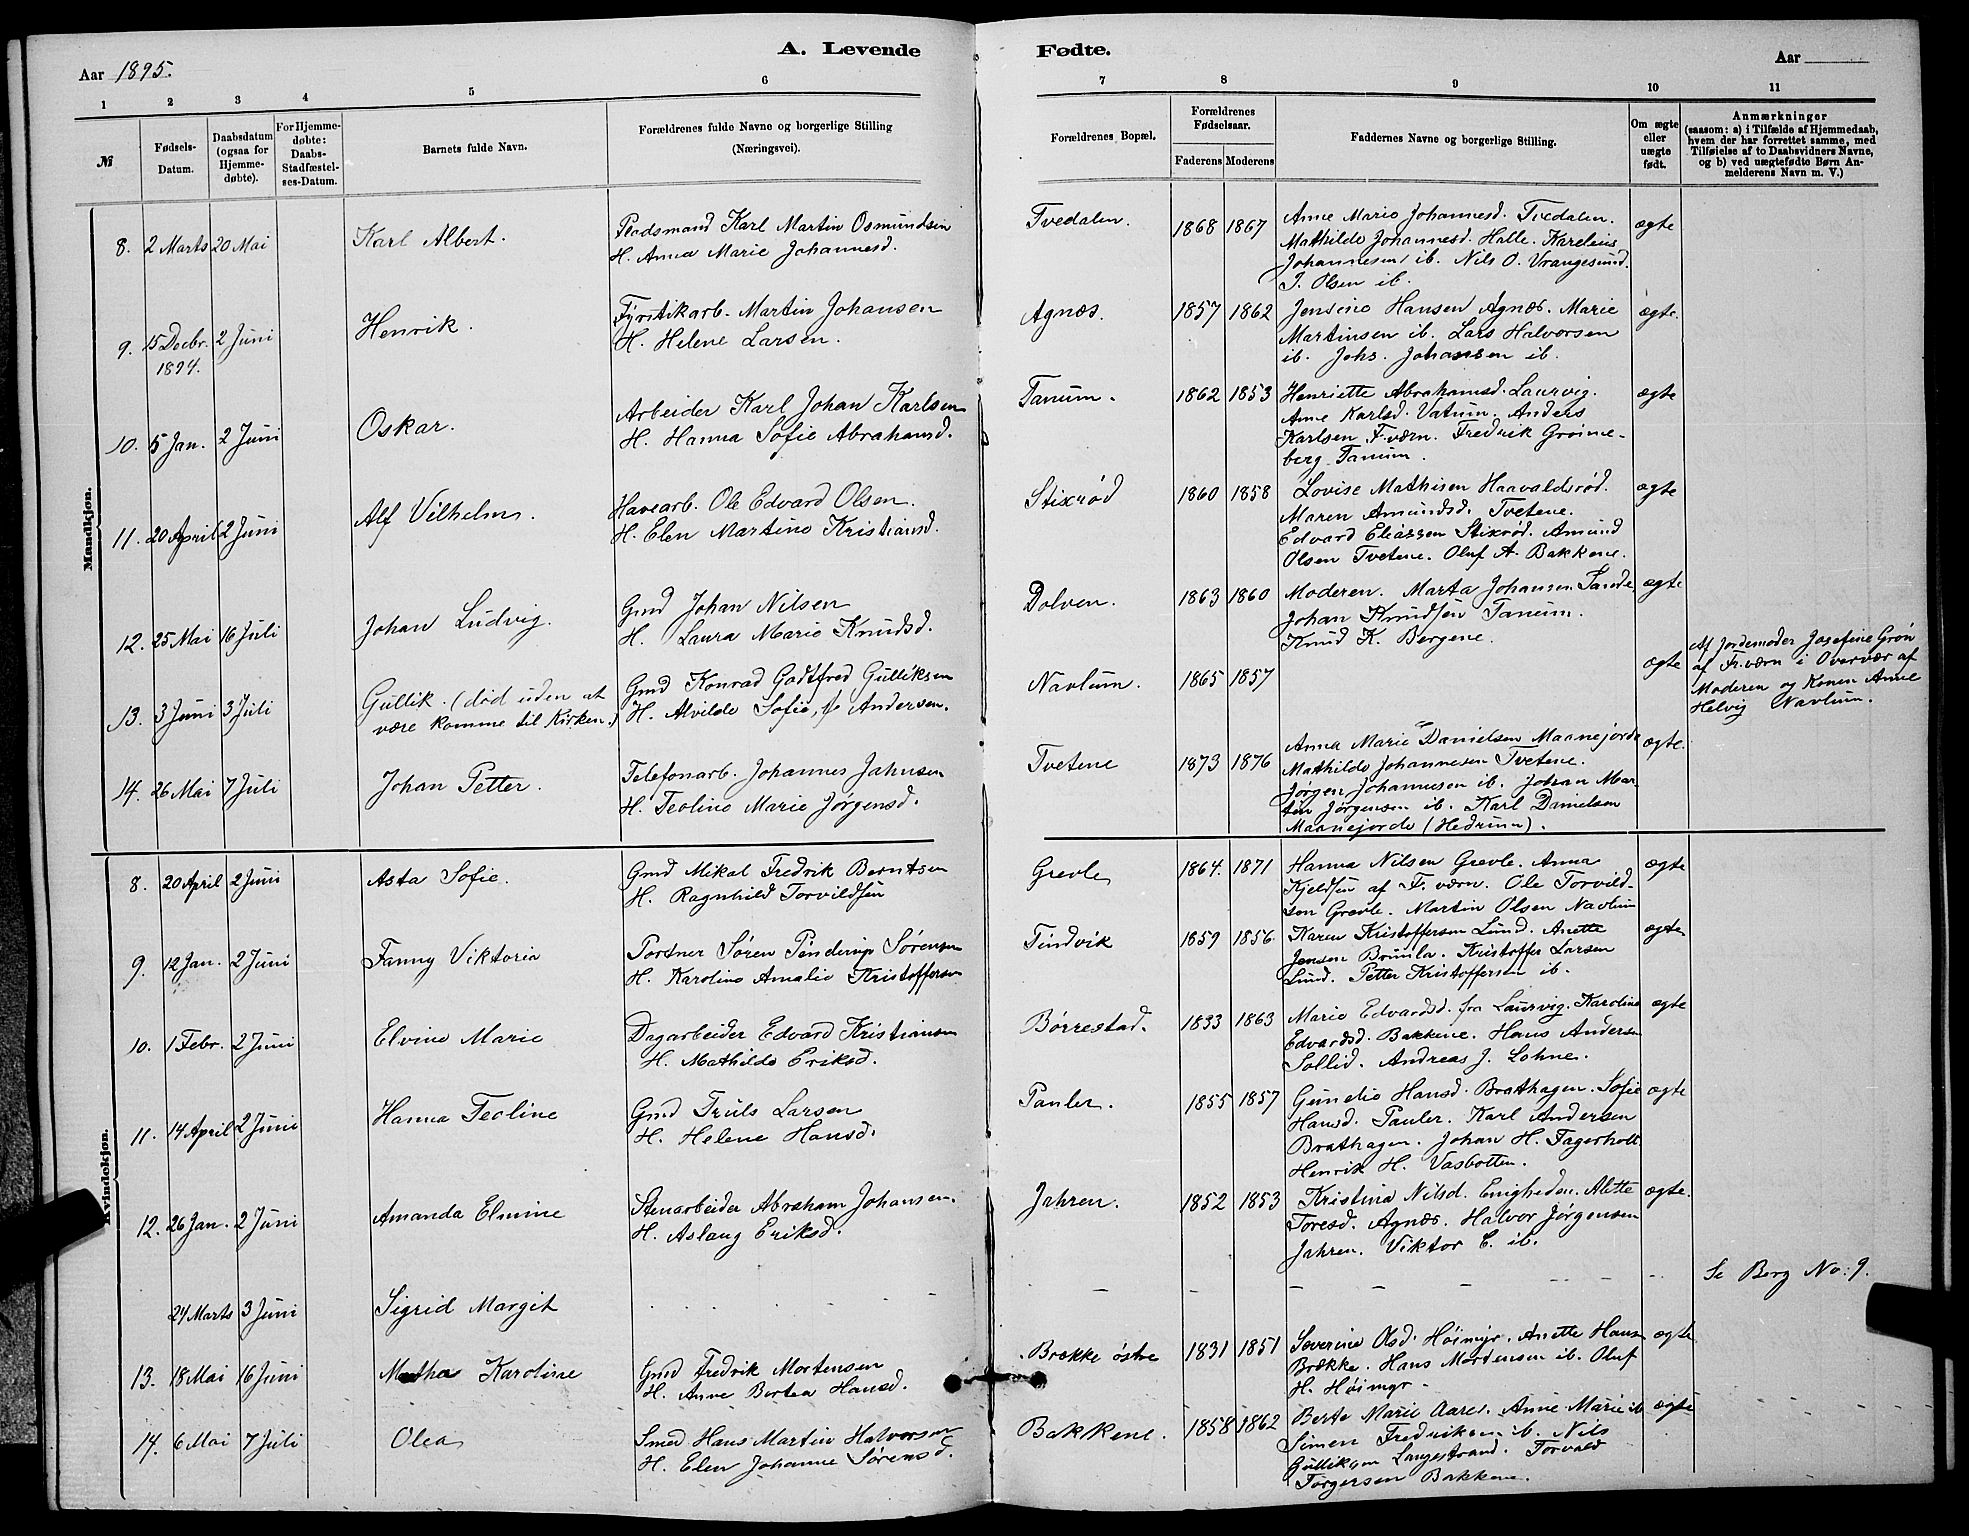 A. Levende
Aar 1895.
1 2 3 4 5 6
№
Fødsels-
Datum.
Daabsdatum
(ogsaa for
Hjemme-
døbte).
For Hjemme-
døbte:
Daabs-
Stadfæstel-
ses-Datum.
Barnets fulde Navn.
Forældrenes fulde Navne og borgerlige Stilling
(Næringsvei).
Mandkjøn.
8. 2 Marts 20 Mai Karl Albert. Pladsmand Karl Martin Osmundsen
H. Anna Marie Johannesd.
9. 15 Decbr. 2 Juni Henrik. Fyrstikarb. Martin Johansen
1894. H. Helene Larsen.
10. 5 Jan. 2 Juni Oskar. Arbeider Karl Johan Karlsen
H. Hanna Sofie Abrahamsd.
11. 20 April 2 Juni Alf Vilhelm. Havearb. Ole Edvard Olsen.
H. Elen Martine Kristiansd.
12. 25 Mai 16 Juli Johan Ludvig. Gmd Johan Nilsen
H. Laura Marie Knudsd.
13. 3 Juni 3 Juli Gullik. (død uden at Gmd Konrad Godtfred Gulliksen
være komme til Kirken.) H. Alvilde Sofie, f. Andersen.
14. 26 Mai 7 Juli Johan Petter. Telefonarb. Johannes Jahnsen
H. Teoline Marie Jørgensd.
Kvindekjøn.
8. 20 April 2 Juni Asta Sofie. Gmd Mikal Fredrik Berntsen
H. Ragnhild Torvildsen
9. 12 Jan. 2 Juni Fanny Viktoria Portner Søren Penderup Sørensen
H. Karoline Amalie Kristoffersen
10. 1 Febr. 2 Juni Elvine Marie Dagarbeider Edvard Kristiansen
H. Mathilde Eriksd.
11. 14 April 2 Juni Hanna Teoline Gmd Truls Larsen
H. Helene Hansd.
12. 26 Jan. 2 Juni Amanda Elmine Stenarbeider Abraham Johansen.
H. Aslaug Eriksd.
24 Marts 3 Juni Sigrid Margit
13. 18 Mai 16 Juni Martha Karoline Gmd Fredrik Mortensen
H. Anne Bertea Hansd.
14. 6 Mai 7 Juli Olea Smed Hans Martin Halvorsen
H. Elen Johanne Sørensd.
Fødte.
Aar
7 8 9 10 11
Forældrenes Bopæl.
Forældrenes
Fødselsaar.
Faderens Moderens
Faddernes Navne og borgerlige Stilling.
Om ægte
eller
uægte
født.
Anmærkninger
(saasom: a) i Tilfælde af Hjemmedaab,
hvem der har forrettet samme, med
Tilføielse af to Daabsvidners Navne,
og b) ved uægtefødte Børn An-
melderens Navn m. V.)
Tvedalen. 1868 1867 Anne Marie Johannesd. Tvedalen. ægte
Mathilde Johannesd. Halle. Karelius
Johannesen ib. Nils O. Vrangesund.
J. Olsen ib.
Agnæs. 1857 1862 Jensine Hansen Agnæs. Marie ægte.
Martinsen ib. Lars Halvorsen
ib. Johs. Johansen ib.
Tanum. 1862 1853 Henriette Abrahamsd. Laurvig. ægte
Anne Karlsd. Vatum. Anders
Karlsen F.værn. Fredrik Grønne-
berg Tanum.
Stixrød 1860 1858 Lovise Mathisen Haavaldsrød. ægte
Maren Amundsd. Tvetene.
Edvard Eliassen Stixrød. Amund
Olsen Tvetene. Oluf A. Bakkene.
Dolven. 1863 1860 Moderen. Marta Johansen Sande ægte
Johan Knudsen Tanum.
Knud K. Bergene.
Navlum. 1865 1857 ægte Af Jordemoder Josefine Grøn
af Fr.værn i Overvær af
Moderen og Konen Anne
Helvig Navlum.
Tvetene 1873 1876 Anna Marie Danielsen Maanejorde ægte.
Mathilde Johannesen Tvetene.
Jørgen Johannesen ib. Johan Mar-
tin Jørgensen ib. Karl Danielsen
Maanejorde (Hedrum).
Grevle 1864. 1871 Hanna Nilsen Grevle. Anna ægte
Kjeldsen af F.værn. Ole Torvild-
sen Grevle. Martin Olsen Navlum
Tindvik 1859 1856. Karen Kristoffersen Lund. Anette ægte
Jensen Brunla. Kristoffer Larsen
Lund. Petter Kristoffersen ib.
Børrestad. 1833 1863 Marie Edvardsd. fra Laurvig. Karoline ægte
Edvardsd. Bakkene. Hans Andersen
Sollid. Andreas J. Lohne.
Pauler. 1855 1857 Gunelie Hansd. Brathagen. Sofie ægte
Hansd. Pauler. Karl Andersen
Brathagen. Johan H. Fagerholt
Henrik H. Vasbotten.
Jahren. 1852 1853 Kristina Nilsd. Enigheden. Alette ægte.
Toresd. Agnæs. Halvor Jørgensen
Jahren. Viktor E. ib.
Se Berg No: 9.
Brække østre 1831 1851 Severine Olsd. Høimyr. Anette Hansen ægte
Brække. Hans Mortensen ib. Oluf
H. Høimyr.
Bakkene. 1858 1862 Berte Marie Aares. Anne Marie ib ægte
Simen Fredriksen ib. Nils
Gulliksen Langestrand. Torvald
Torgersen Bakkene.